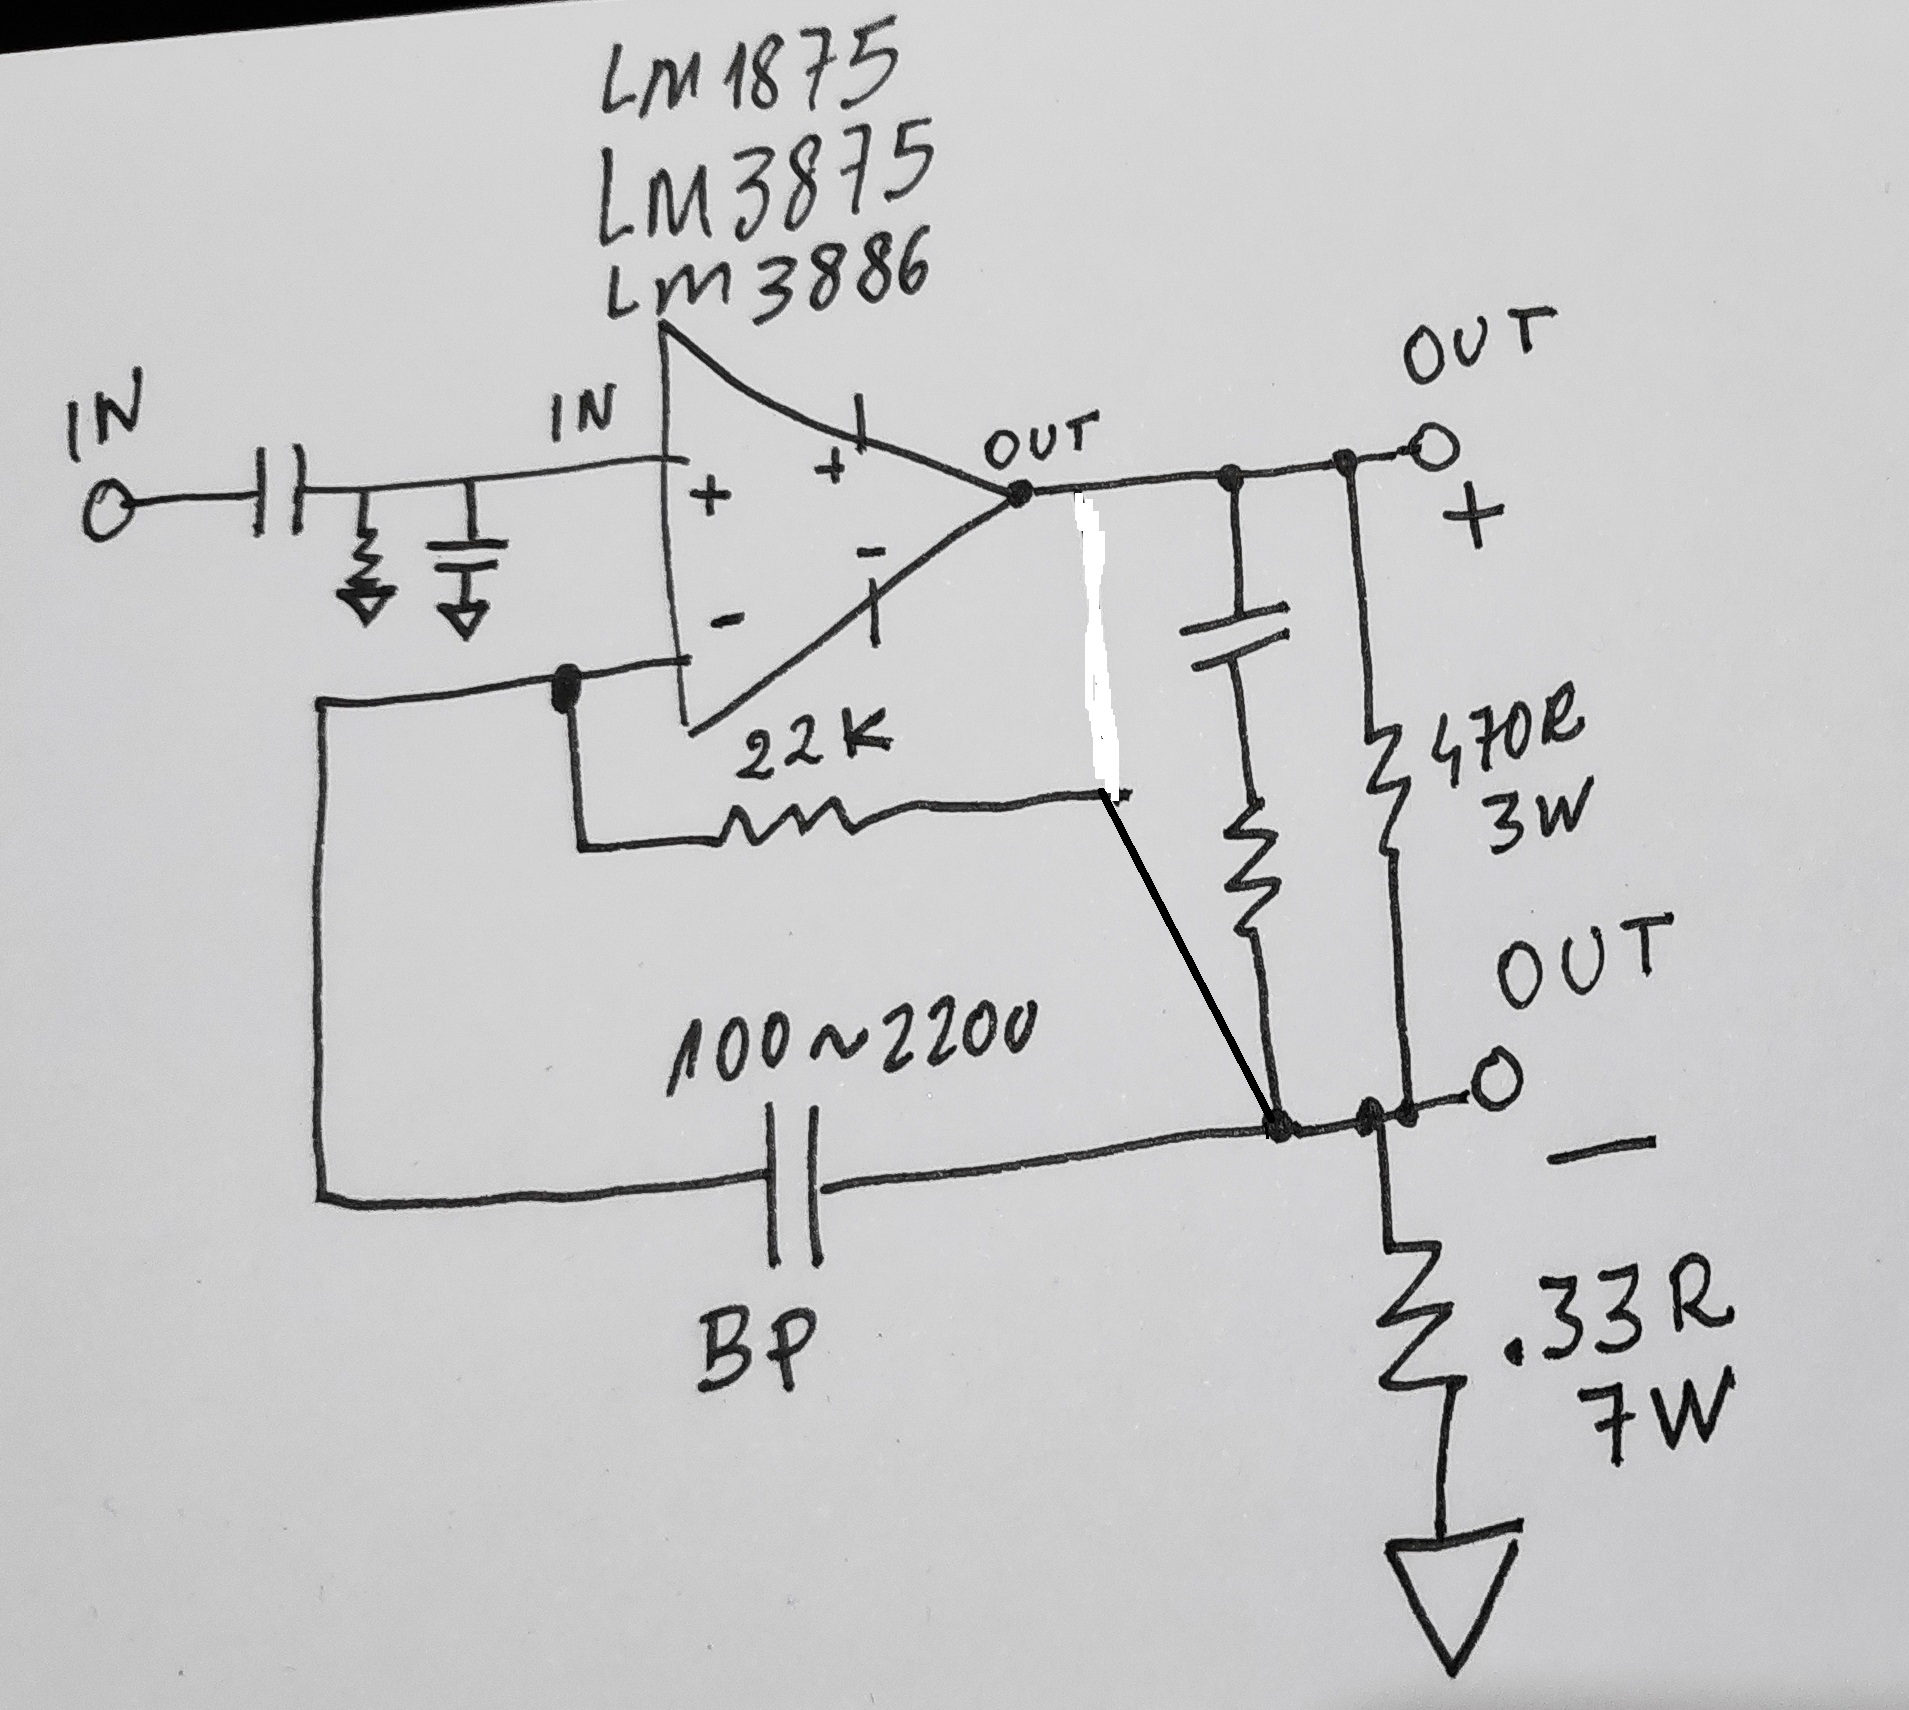 LM1875
LM3875
LM3886
IN
IN
OUT
OUT
+
-
+
-
+
22K
470R
3W
OUT
100~2200
BP
.33R
7W